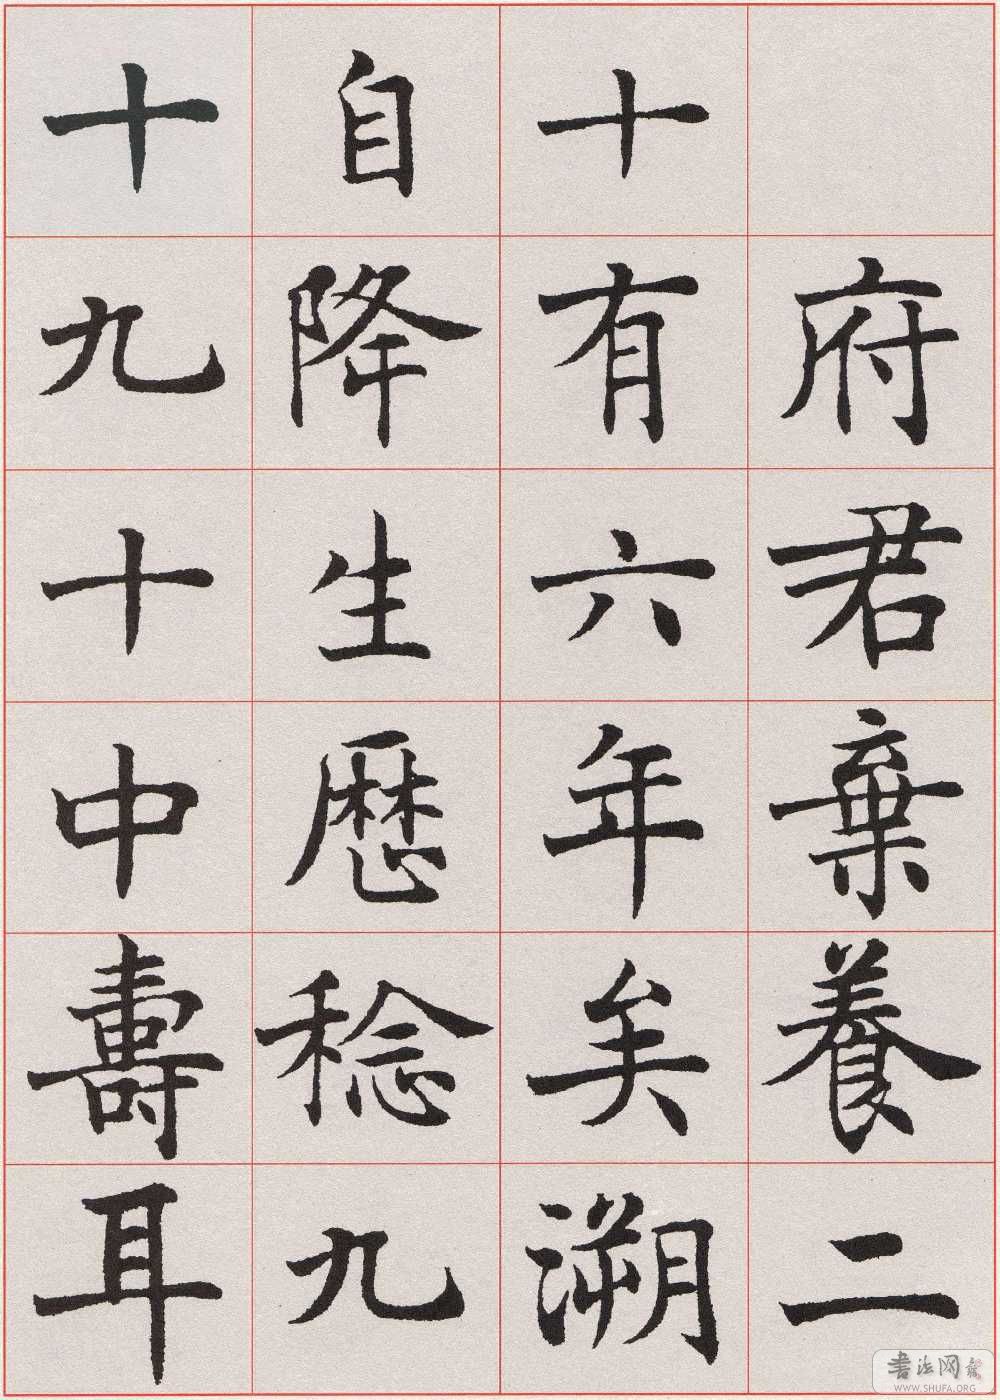 府君棄養二
十有六年矣溯
自降生歴稔九
十九十中壽耳
書法网
WWW.SHUFA.ORG